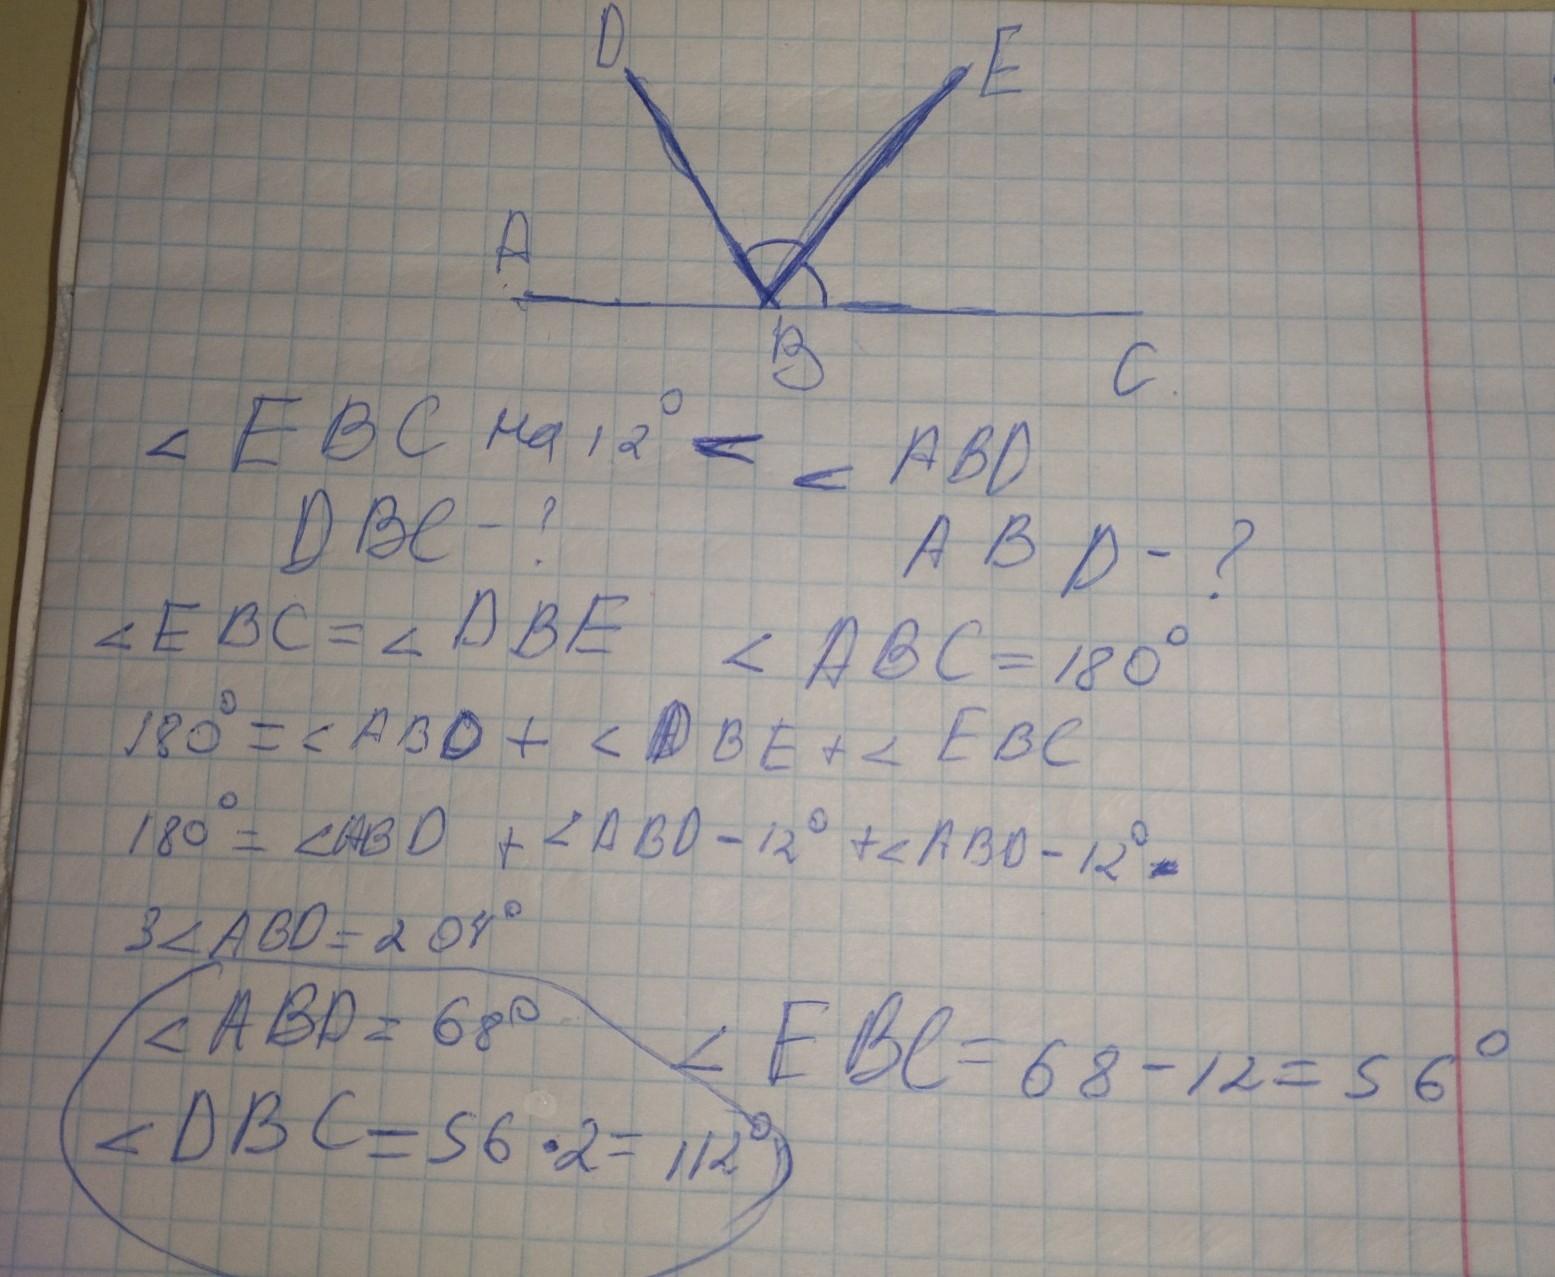 D E
A
B C
< EBC на 12° < < ABD
DBC - ? ABD - ?
< EBC = < DBE < ABC = 180°
180° = < ABD + < DBE + < EBC
180° = < ABD + < ABD - 12° + < ABD - 12°
3 < ABD = 204°
< ABD = 68° < EBC = 68 - 12 = 56°
< DBC = 56 · 2 = 112°